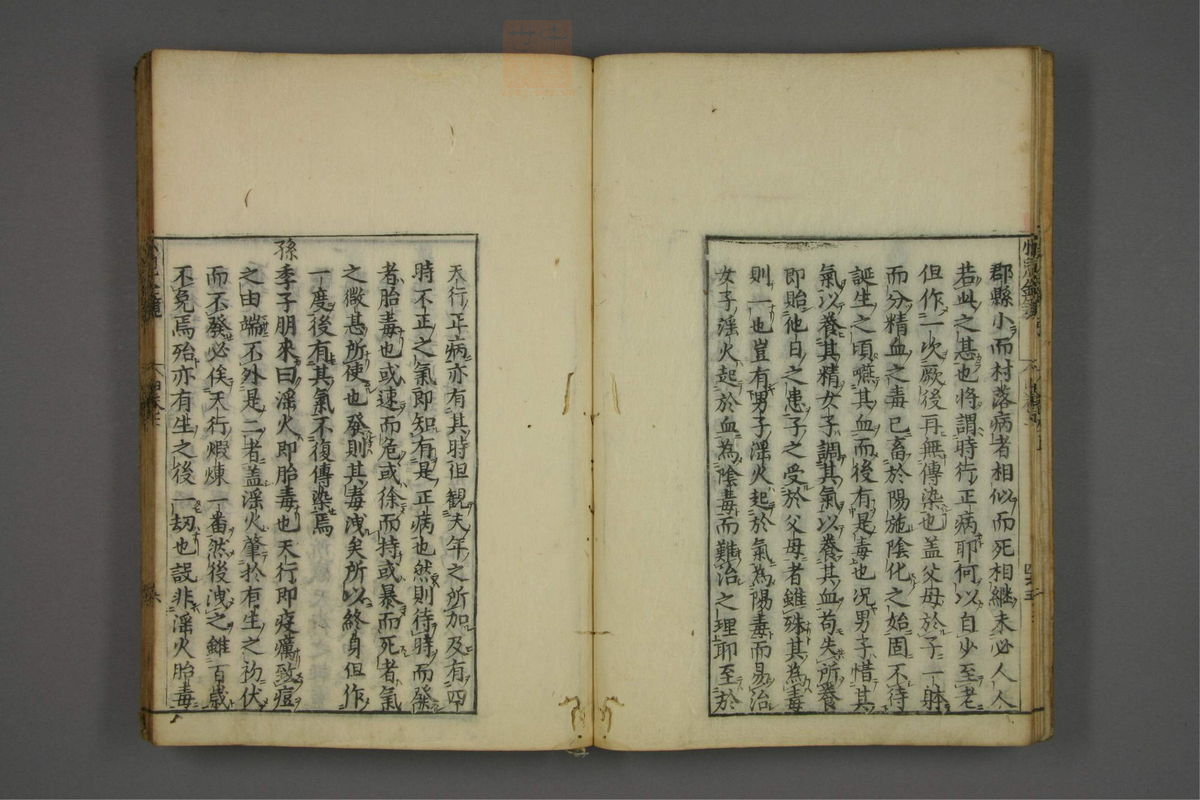 郡縣小而村落病者相似而死相繼未必人人
若此之甚也將謂時行正病耶何以自少至老
但作一次厥後再無傳染也盖父母於子一躰
而分精血之毒已畜於陽施陰化之始固不待
誕生之頃嚥其血而後有是毒也况男子惜其
氣以養其精女子調其氣以養其血苟失所養
即貽他日之患子之受於父母者雖殊其為毒
則一也豈有男子淫火起於氣為陽毒而易治
女子淫火起於血為陰毒而難治之理耶至於
天行正病亦有其時但観夫年之所加及有四
時不正之氣即知有是正病也然則待時而發
者胎毒也或速而危或徐而持或暴而死者氣
之微甚所使也發則其毒洩矣所以終身但作
一度後有其氣不復傳染焉
孫季子朋來曰淫火即胎毒也天行即疫癘致痘
之由端不外是二者盖淫火肇於有生之初伏
而不發必俟天行煆煉一番然後洩之雖百歳
不免焉殆亦有生之後一刧也設非淫火胎毒